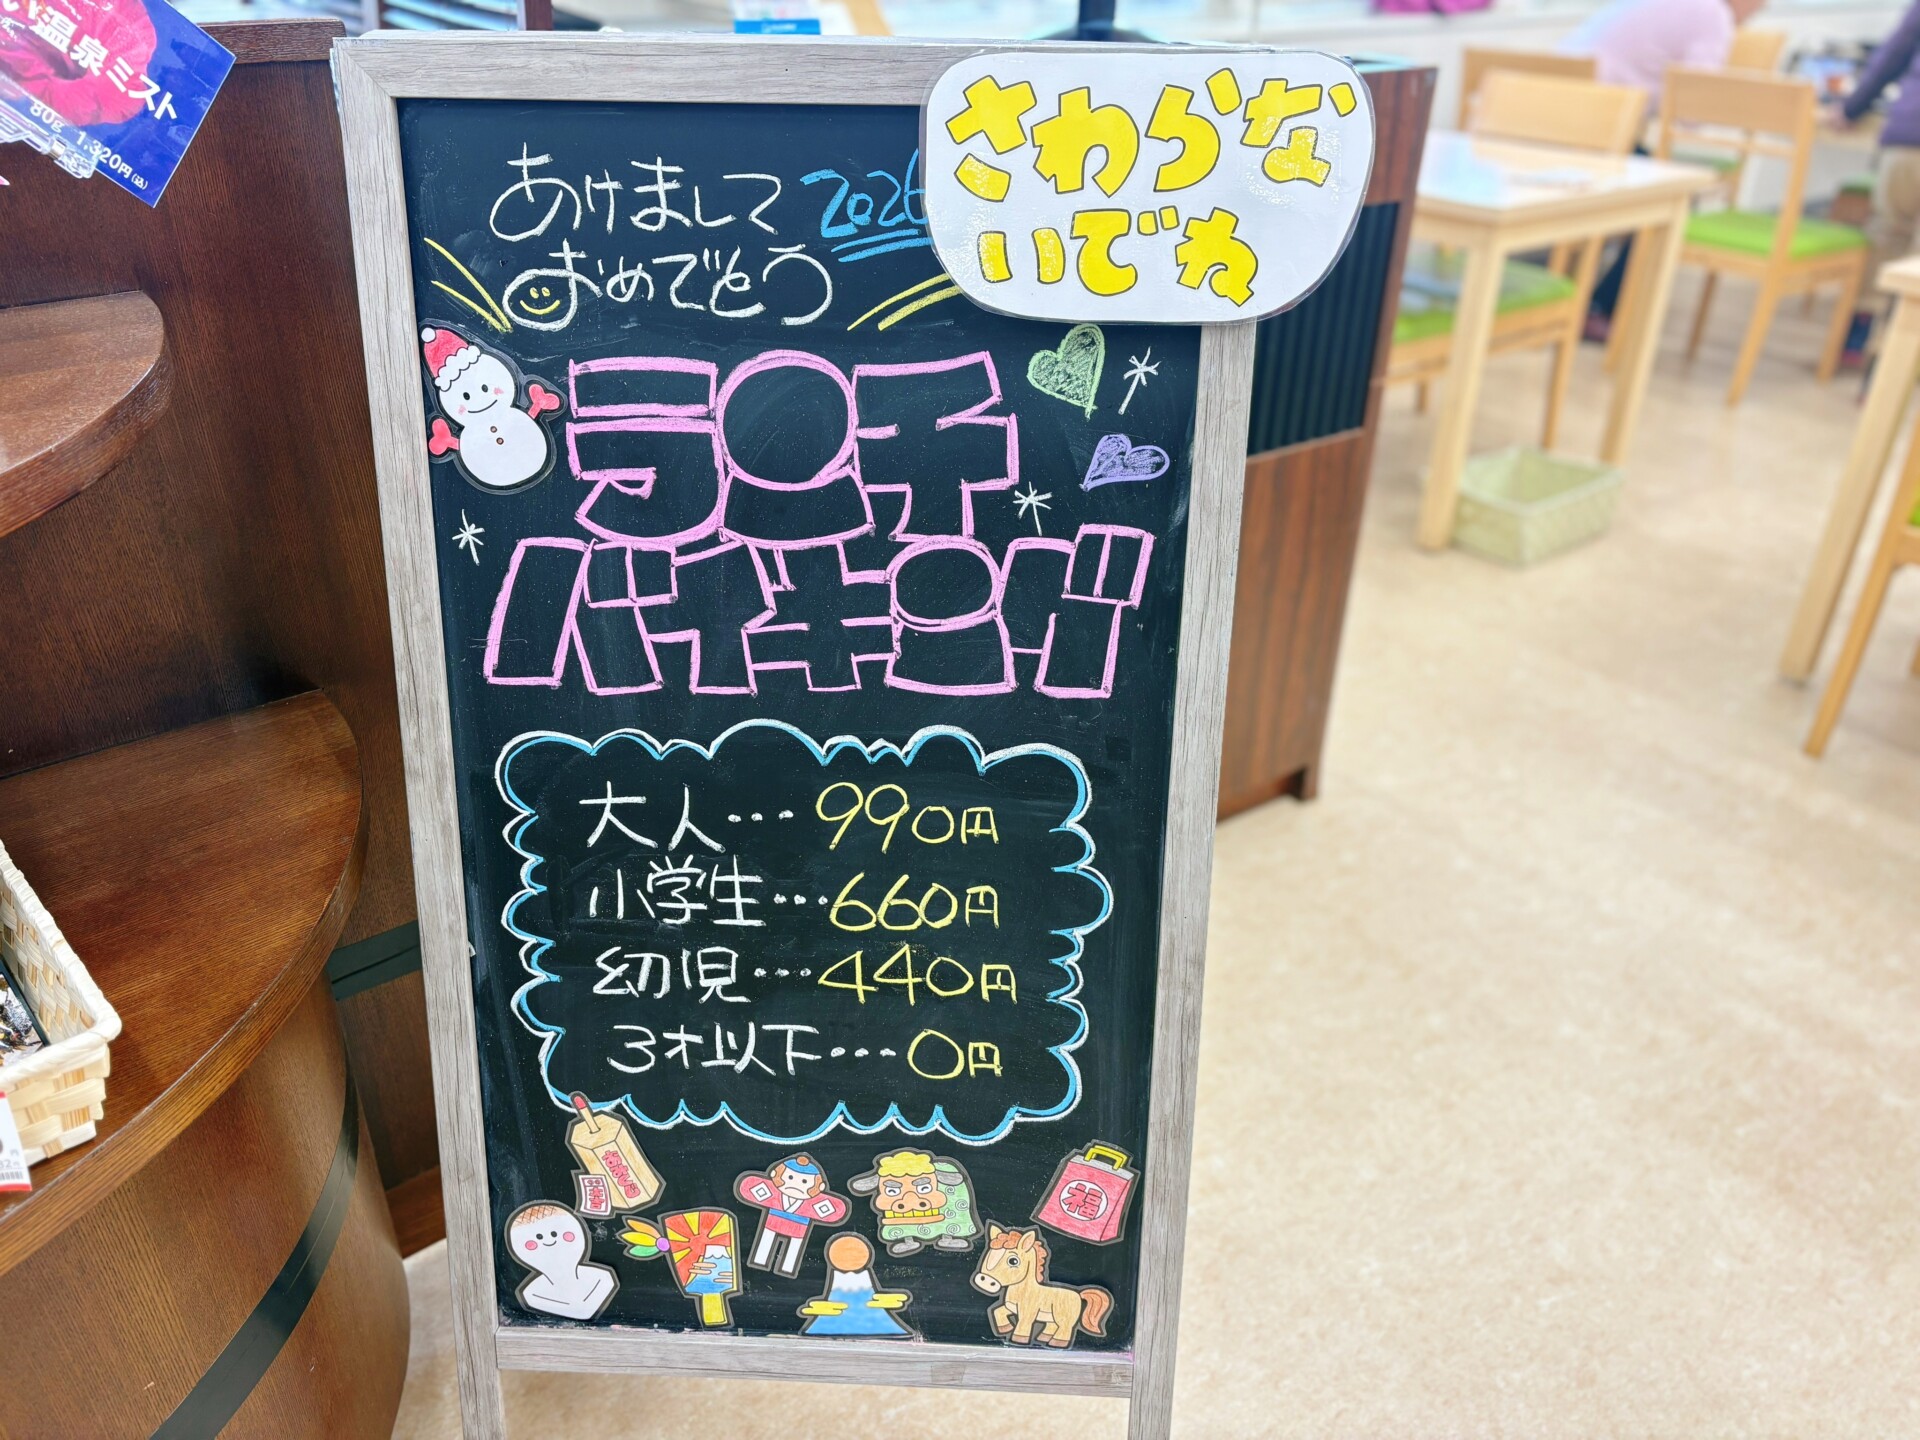 温泉ミスト
80g 1,320円(税込)
さわらな
いでね
あけまして 2026
おめでとう
ランチ
バイキング
大人…990円
小学生…660円
幼児…440円
3才以下…0円
おみくじ
大吉
福